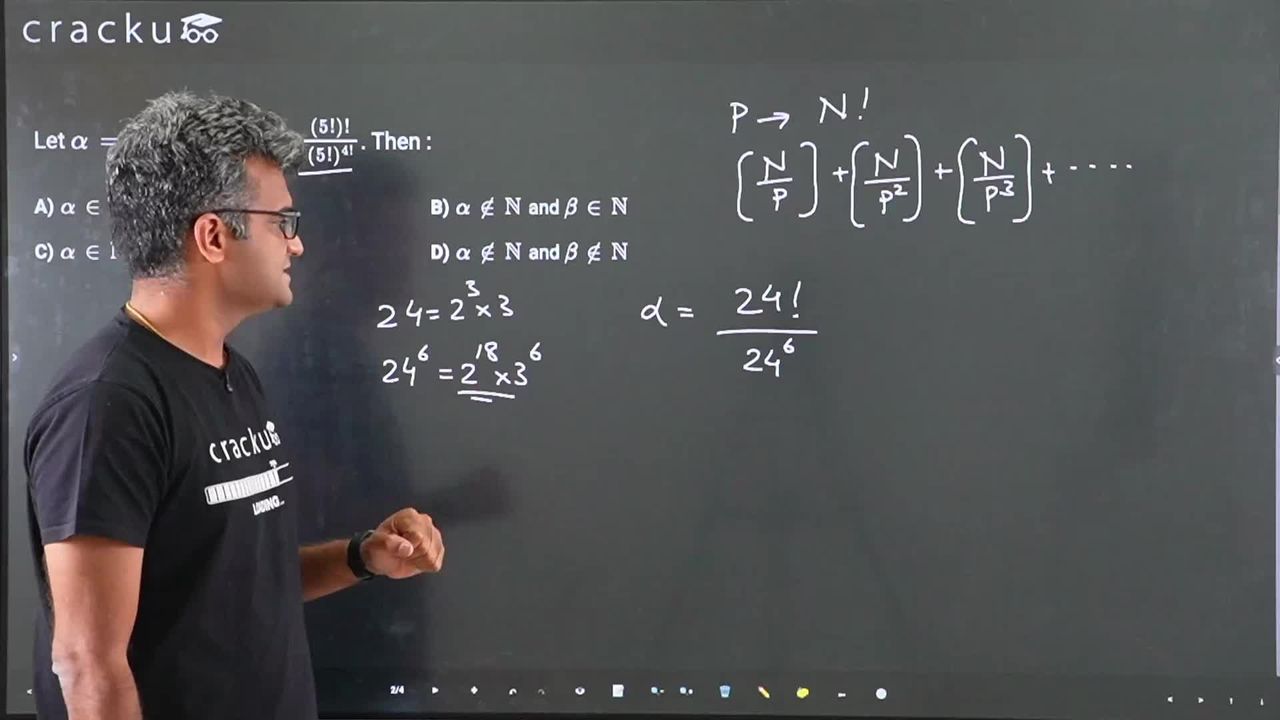 cracku
Let α =
(5!)!
(5!)^4!
. Then :
A) α ∈
B) α ∉ ℕ and β ∈ ℕ
C) α ∈
D) α ∉ ℕ and β ∉ ℕ
P → N!
[N/P] + [N/P²] + [N/P³] + ....
24 = 2³ × 3
24⁶ = 2¹⁸ × 3⁶
α = 24!/24⁶
cracku
LOADING...
2/4